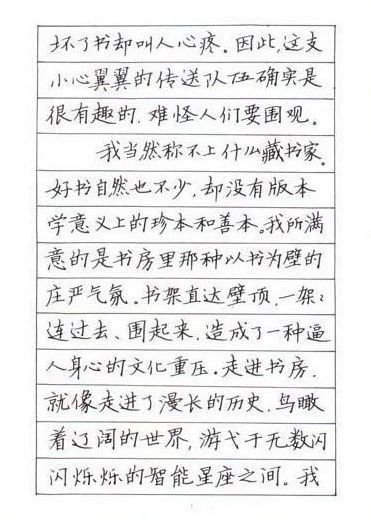 坏了书却叫人心疼。因此,这支
小心翼翼的传送队伍确实是
很有趣的.难怪人们要围观。
我当然称不上什么藏书家。
好书自然也不少,却没有版本
学意义上的珍本和善本。我所满
意的是书房里那种以书为壁的
庄严气氛。书架直达壁顶,一架々
连过去、围起来,造成了一种逼
人身心的文化重压.走进书房.
就像走进了漫长的历史.鸟瞰
着辽阔的世界,游弋于无数闪
闪烁烁的智能星座之间。我